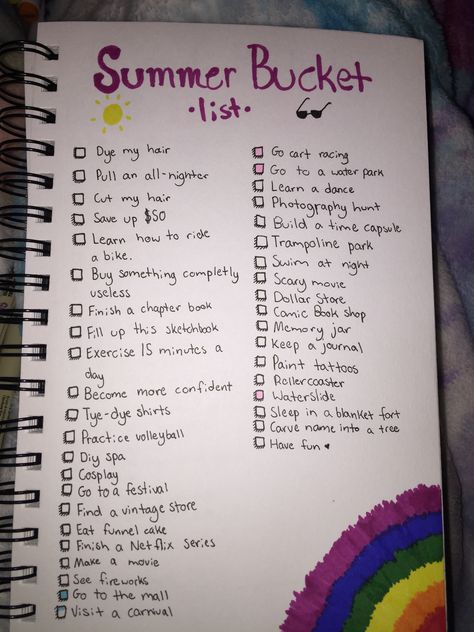 Summer Bucket
•list•
Dye my hair
Pull an all-nighter
Cut my hair
Save up $50
Learn how to ride
a bike.
Buy something completly
useless
Finish a chapter book
Fill up this sketchbook
Exercise 15 minutes a
day
Become more confident
Tye-dye shirts
Practice volleyball
Diy spa
Cosplay
Go to a festival
Find a vintage store
Eat funnel cake
Finish a Netflix series
Make a movie
See fireworks
Go to the mall
Visit a carnival
Go cart racing
Go to a water park
Learn a dance
Photography hunt
Build a time capsule
Trampoline park
Swim at night
Scary movie
Dollar Store
Comic Book shop
Memory jar
Keep a journal
Paint tattoos
Rollercoaster
Waterslide
Sleep in a blanket fort
Carve name into a tree
Have fun ♥